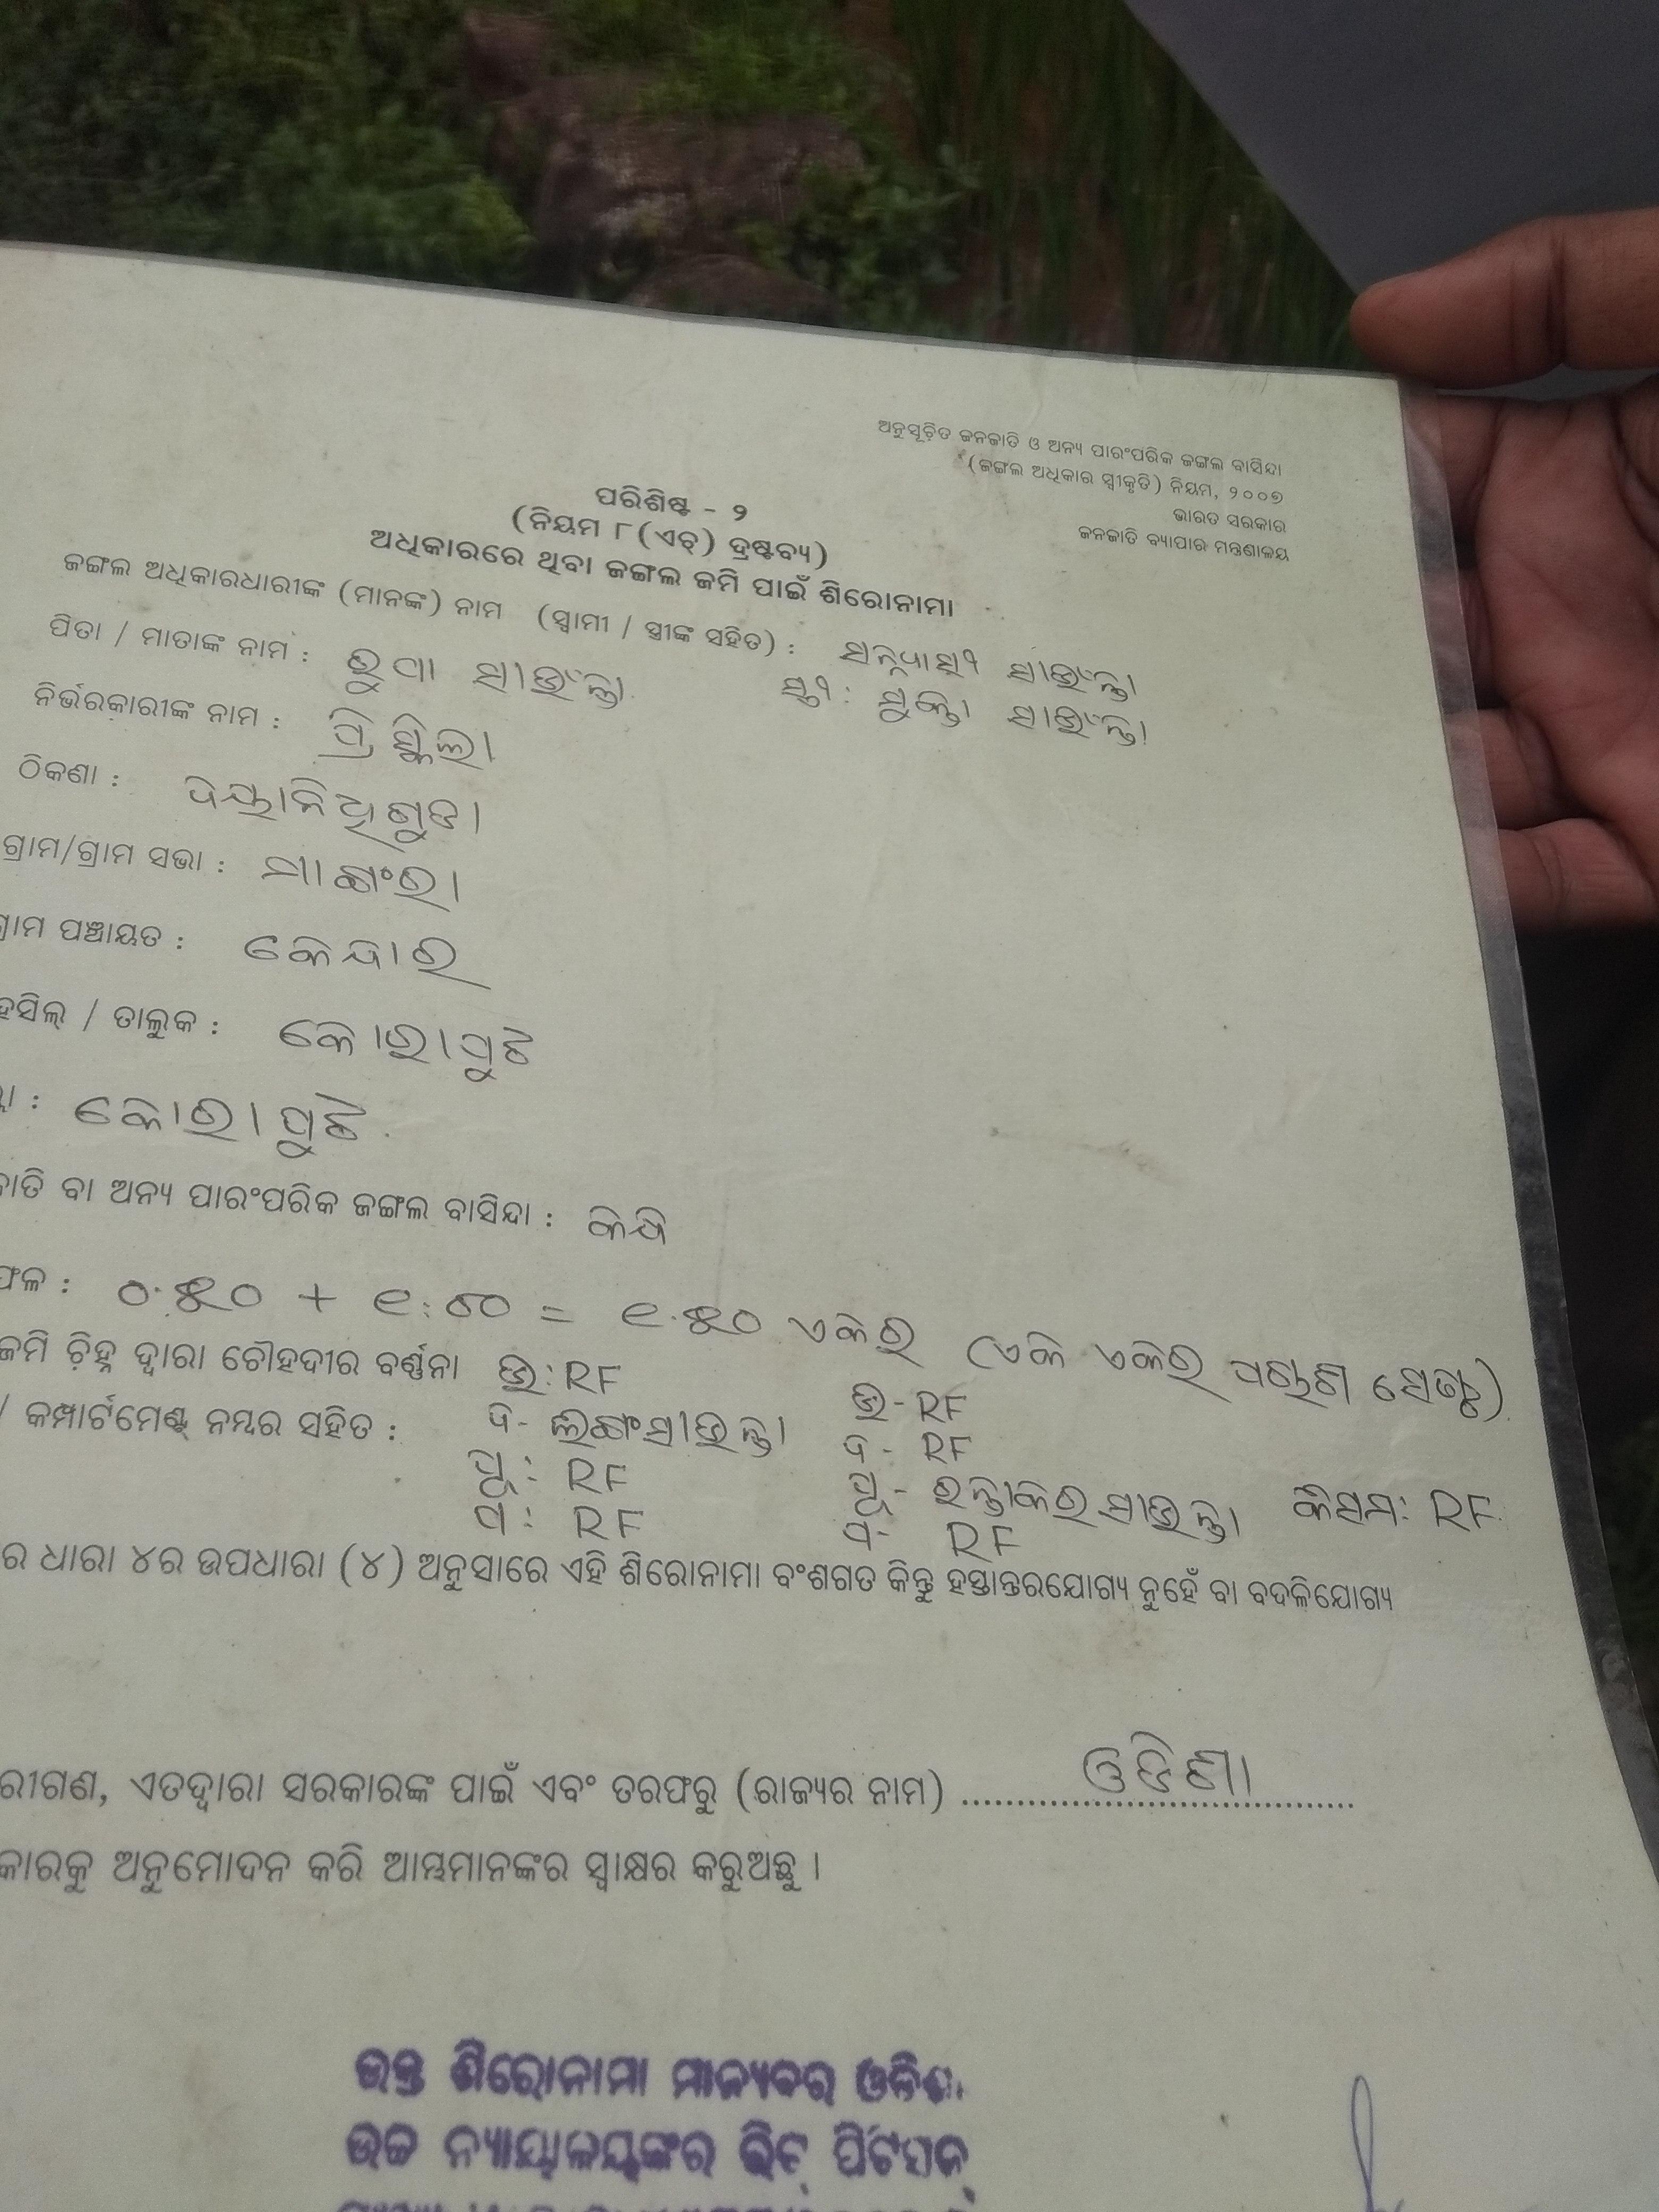 ଅନୁସୂଚିତ ଜନଜାତି ଓ ଅନ୍ୟ ପାରଂପରିକ ଜଙ୍ଗଲ ବାସିନ୍ଦା
(ଜଙ୍ଗଲ ଅଧିକାର ସ୍ୱୀକୃତି) ନିୟମ, ୨୦୦୭
ଭାରତ ସରକାର
ଜନଜାତି ବ୍ୟାପାର ମନ୍ତ୍ରଣାଳୟ
ପରିଶିଷ୍ଟ - ୨
(ନିୟମ ୮(ଏଚ୍) ଦ୍ରଷ୍ଟବ୍ୟ)
ଅଧିକାରରେ ଥିବା ଜଙ୍ଗଲ ଜମି ପାଇଁ ଶିରୋନାମା
ଜଙ୍ଗଲ ଅଧିକାରଧାରୀଙ୍କ (ମାନଙ୍କ) ନାମ (ସ୍ୱାମୀ / ସ୍ତ୍ରୀଙ୍କ ସହିତ) : ସାଉଁନ୍ତା
ସାଉଁନ୍ତା
ପିତା / ମାତାଙ୍କ ନାମ : ରୁପା ସାଉଁନ୍ତା
ନିର୍ଭରକାରୀଙ୍କ ନାମ : ପ୍ରିସ୍କିଲା
ଠିକଣା : ଦିୟାନିଧିଗୁଡା
ଗ୍ରାମ/ଗ୍ରାମ ସଭା :
ଗ୍ରାମ ପଞ୍ଚାୟତ : କେନ୍ଦାର
ହସିଲ୍ / ତାଲୁକ : କୋରାପୁଟ
ଲ୍ଲା : କୋରାପୁଟ
ଜାତି ବା ଅନ୍ୟ ପାରଂପରିକ ଜଙ୍ଗଲ ବାସିନ୍ଦା :
ଫଳ : ୦.୫୦ + ୧.୦୦ = ୧.୫୦ ଏକର (ଏକ ଏକର ପଚାଶ ସେଣ୍ଟ)
ଜମି ଚିହ୍ନ ଦ୍ୱାରା ଚୌହଦୀର ବର୍ଣ୍ଣନା ଉ: RF ଉ- RF
/ କମ୍ପାର୍ଟମେଣ୍ଟ ନମ୍ବର ସହିତ : ଦ- ସାଉନ୍ତା ଦ- RF
ପୂ: RF ପୂ- ସାଉନ୍ତା କିସମ: RF
ପ: RF ପ- RF
ର ଧାରା ୪ର ଉପଧାରା (୪) ଅନୁସାରେ ଏହି ଶିରୋନାମା ବଂଶଗତ କିନ୍ତୁ ହସ୍ତାନ୍ତରଯୋଗ୍ୟ ନୁହେଁ ବା ବଦଳିଯୋଗ୍ୟ
ରୀଗଣ, ଏତଦ୍ୱାରା ସରକାରଙ୍କ ପାଇଁ ଏବଂ ତରଫରୁ (ରାଜ୍ୟର ନାମ) ଓଡିଶା
କାରକୁ ଅନୁମୋଦନ କରି ଆମ୍ଭମାନଙ୍କର ସ୍ୱାକ୍ଷର କରୁଅଛୁ ।
ଉକ୍ତ ଶିରୋନାମା ମାନ୍ୟବର ଓଡିଶା
ଉଚ୍ଚ ନ୍ୟାୟାଳୟଙ୍କର ରିଟ୍ ପିଟିସନ୍